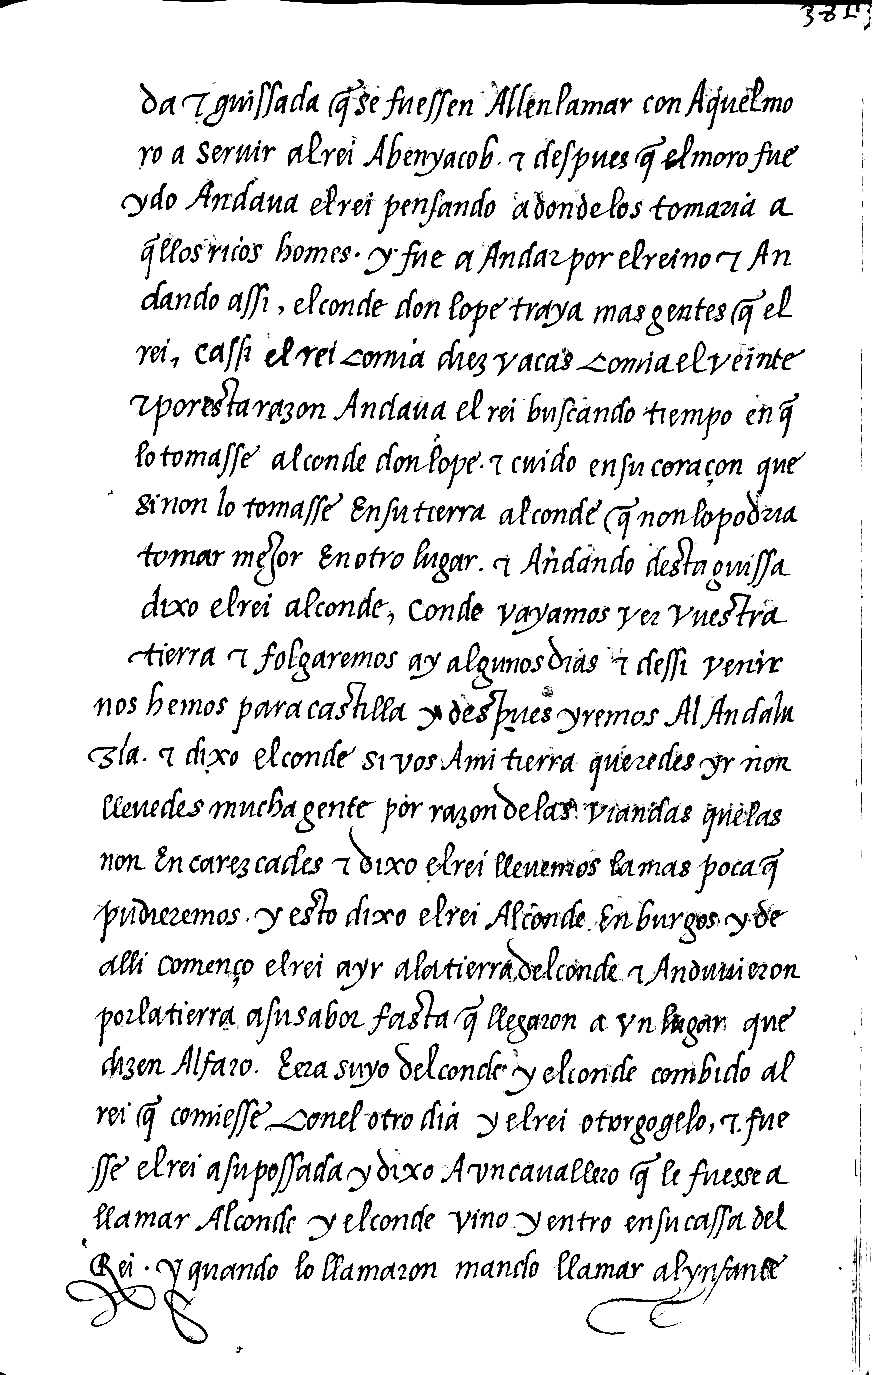 da ⁊ guissada q̃ se fuessen Allen lamar con Aquel mo
ro a seruir al rei Abenyacob. ⁊ despues q̃ el moro fue
ydo Andaua el rei pensando adonde los tomaria a
q̃llos ricos homes. y fue a Andar por el reino ⁊ An
dando assi, el conde don lope traya mas gentes q̃ el
rei, Ca ssi el rei comia diez vacas comia el veinte
⁊ por esta razon Andaua el rei buscando tiempo en q̃
lo tomasse al conde don lope. ⁊ cuido en su coraçon que
si non lo tomasse En su tierra al conde q̃ non lo podria
tomar mejor En otro lugar. ⁊ Andando desta guissa
dixo el rei al conde, Conde vayamos ver vuestra
tierra ⁊ folgaremos ay algunos dias ⁊ dessi venir
nos hemos para castilla y despues yremos Al Andalu
zia. ⁊ dixo el conde si vos A mi tierra queredes yr non
lleuedes mucha gente por razon de las viandas que las
non Encarezcades ⁊ dixo el rei lleuemos la mas poca q̃
pudieremos. y esto dixo el rei Al conde En burgos y de
alli començo el rei a yr a la tierra del conde ⁊ Anduuieron
por la tierra a su sabor fasta q̃ llegaron a vn lugar que
dizen Alfaro. Eera suyo del conde y el conde combido al
rei q̃ comiesse Con el otro dia y el rei otorgogelo, ⁊ fue
sse el rei a su possada y dixo A vn cauallero q̃ le fuesse a
llamar Al conde y el conde vino y entro en su cassa del
Rei. y quando lo llamaron mando llamar al ynfante